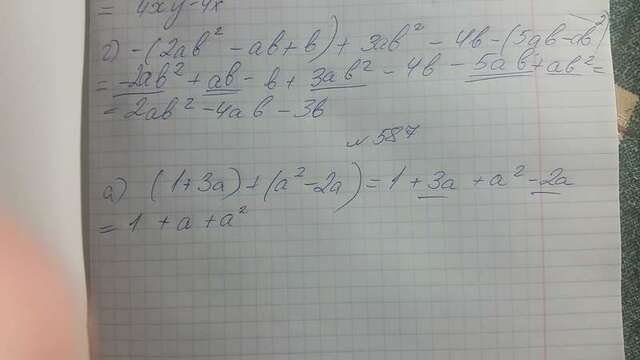 = 4xy - 4x
г) -(2ab² - ab + b) + 3ab² - 4b - (5ab - ab²)
= -2ab² + ab - b + 3ab² - 4b - 5ab + ab² =
= 2ab² - 4ab - 3b
№ 587
а) (1+3a) + (a² - 2a) = 1 + 3a + a² - 2a
= 1 + a + a²